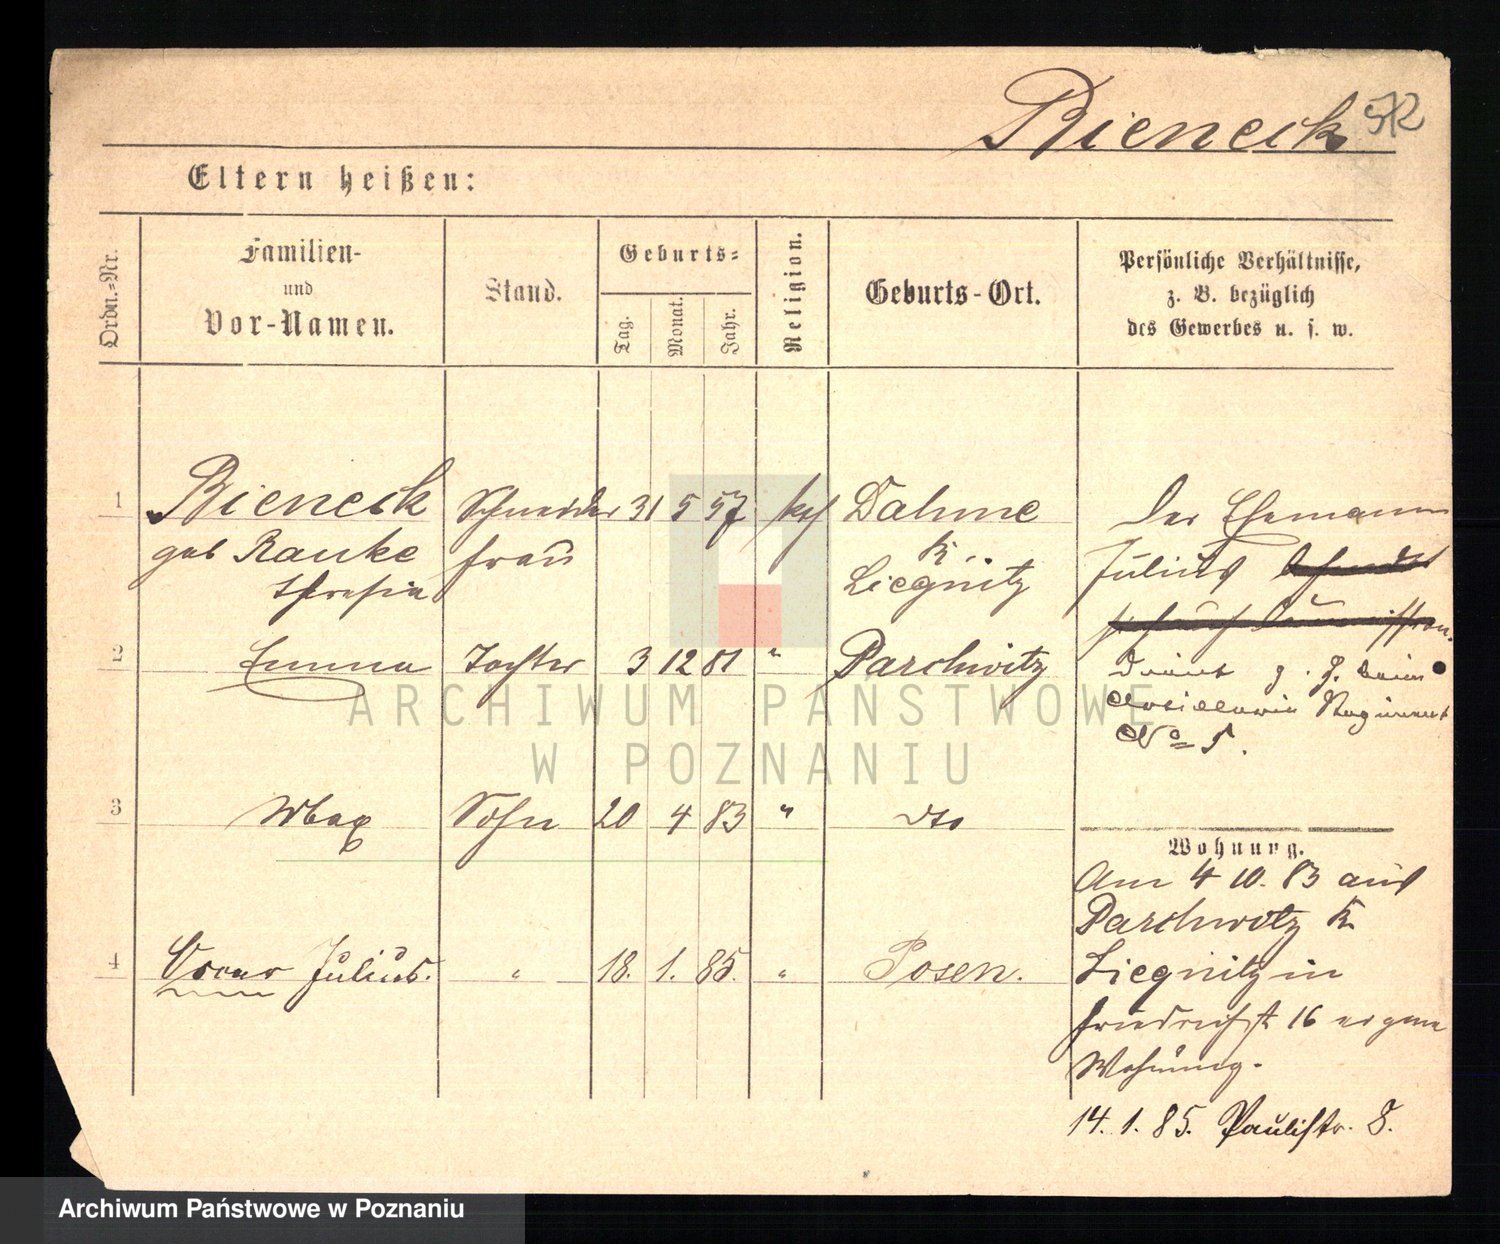 Bieneck 572
Eltern heißen:
Ordn.-Nr.
Familien-
und
Vor-Namen.
Stand.
Geburts-
Tag.
Monat.
Jahr.
Religion.
Geburts-Ort.
Persönliche Verhältnisse,
z. B. bezüglich
des Gewerbes u. s. w.
1 Bieneck Schneider 31 5 57 kath Dahme Der Ehemann
geb Ranke frau K. Julius
Theresia Liegnitz
2 Emma Tochter 3 12 81 " Parchwitz
dient z. Z. beim
Artillerie Regiment
No 5.
ARCHIWUM PAŃSTWOWE
W POZNANIU
3 Max Sohn 20 4 83 " dto
Wohnung.
Am 4 10. 83 aus
Parchwitz K.
4 Oscar Julius. " 18. 1. 85. " Posen. Liegnitz in
Friedrichst 16 eigene
Wohnung.
14. 1. 85. Paulistr. 8.
Archiwum Państwowe w Poznaniu